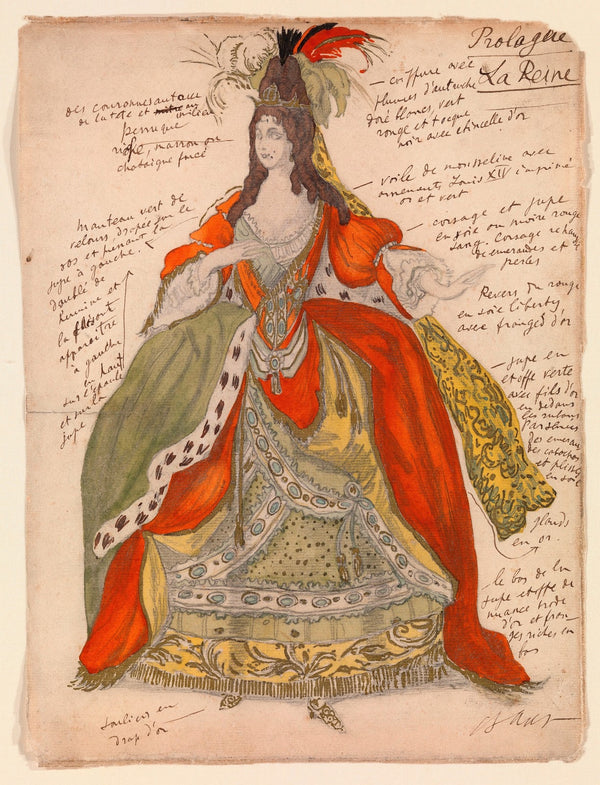 Prologue
La Reine
coiffure avec
plumes d'autruche
doré blanc, vert
rouge et toque
noir avec etincelle d'or
des couronnes autour
de la tete et au milieu
perruque
marron ou
chataigne foncé
voile de mousseline avec
ornements Louis XIV imprimé
or et vert
corsage et jupe
en soie ou moire rouge
sang. Corsage
de emeraudes et de
perles
manteau vert de
velours drapée sur le
dos et prenant la
jupe à gauche.
doublé de
hermine et
la faisant
apparaître
à gauche
en haut
sur l'epaule
et sur la
jupe
Revers rouge
en soie liberty,
avec franges d'or
jupe en
etoffe verte
avec fils d'or
en dedans
les rubans
parsemés
des emeraudes
de cabochons
et plissé
en soie
glands
en or.
le bas de la
jupe etoffe de
nuance
d'or et fran
ges riches en
bas
souliers en
drap d'or
Bakst